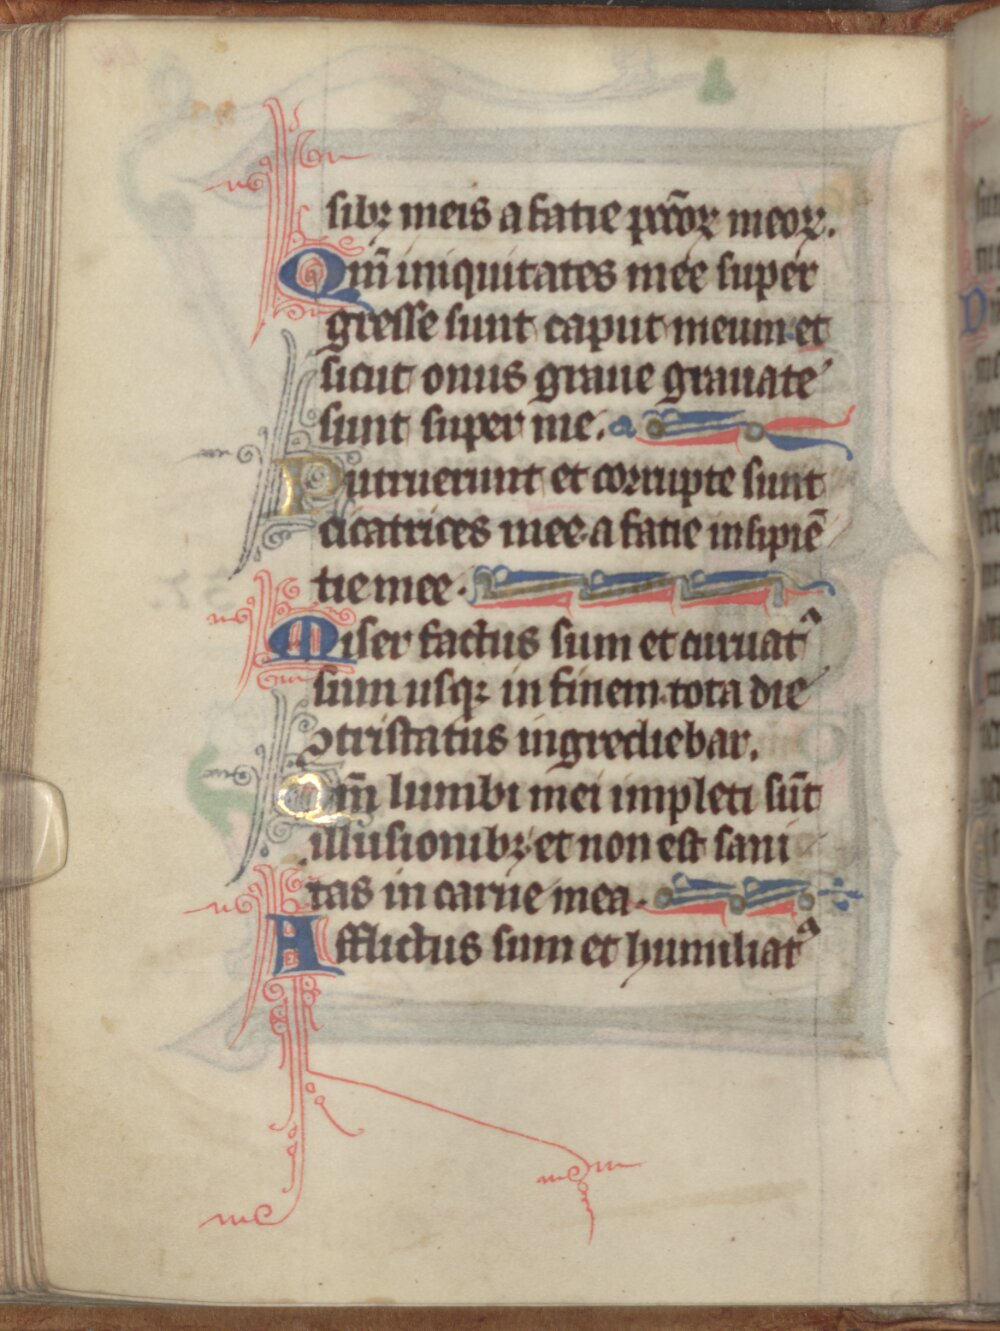 sibꝫ meis a facie pccōꝝ meoꝝ.
Qm̄ iniquitates mee super
gresse sunt caput meum et
sicut onus graue grauate
sunt super me.
Putruerunt et corrupte sunt
cicatrices mee a facie insipiē
tie mee.
Miser factus sum et curuatꝰ
sum usqꝫ in finem tota die
ↄtristatus ingrediebar.
Qm̄ lumbi mei impleti sūt
illusionibꝫ et non est sani
tas in carne mea.
Afflictus sum et humiliatꝰ